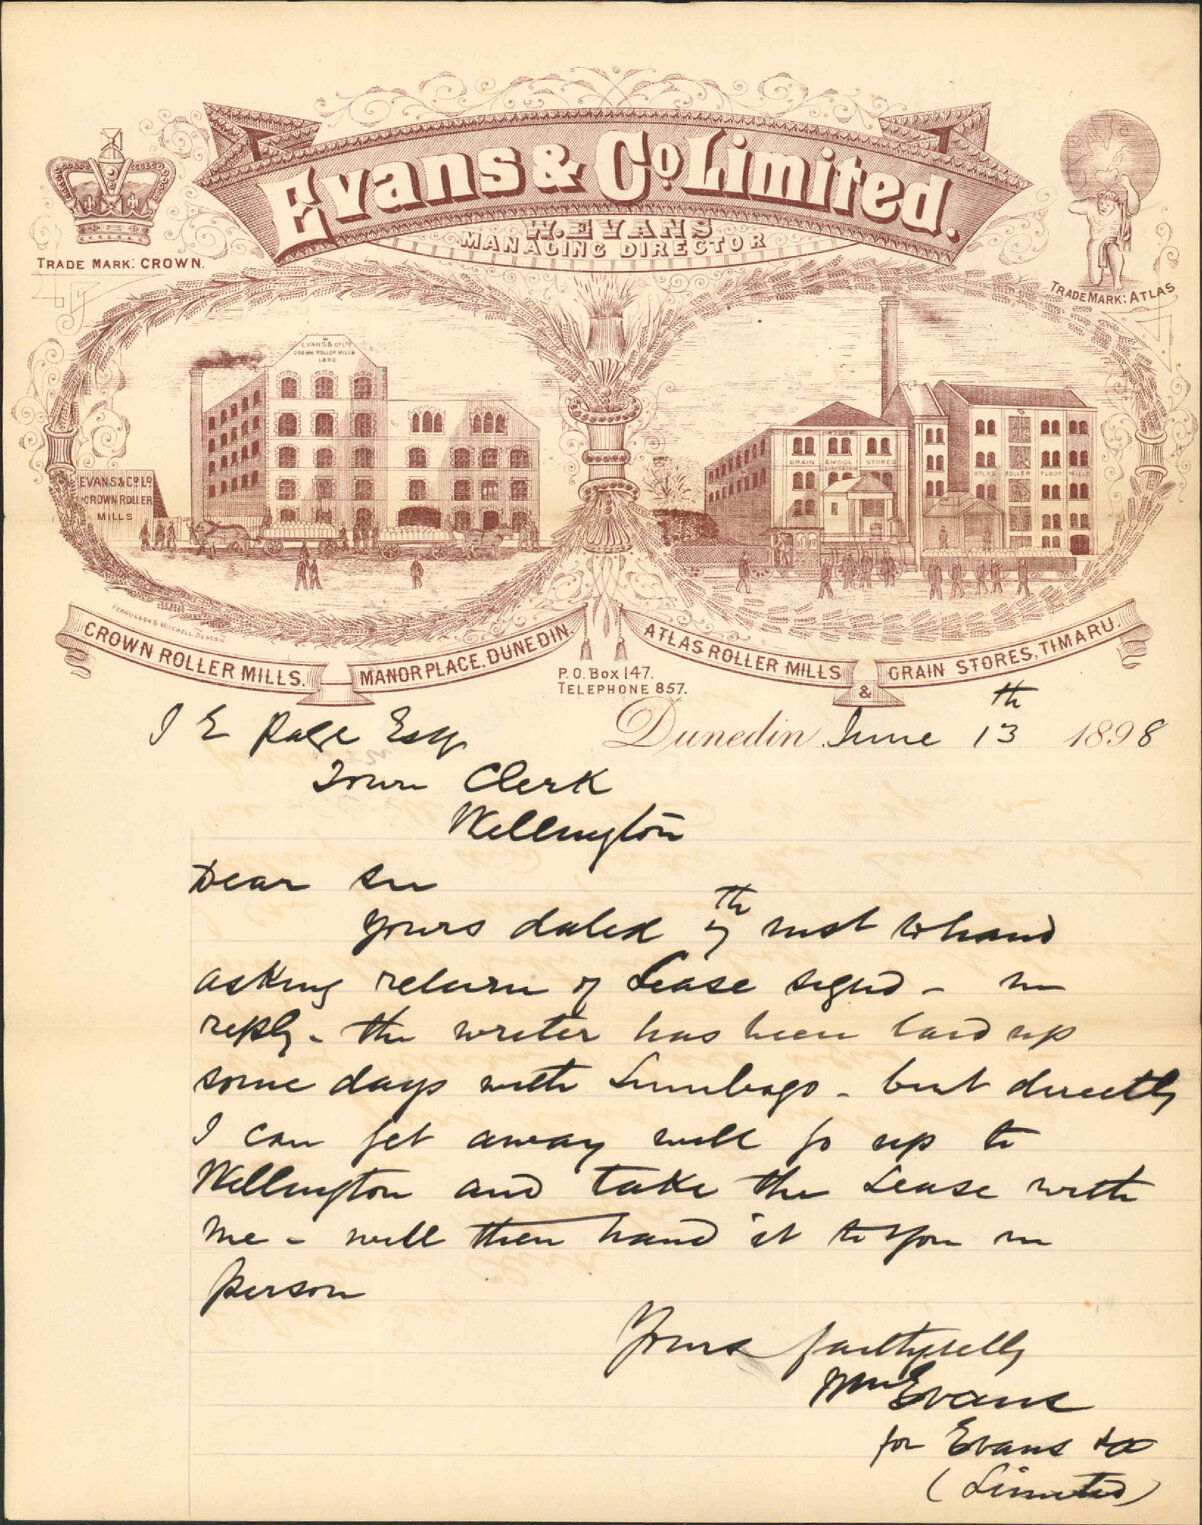 Evans & Co. Limited.
W. EVANS
MANAGING DIRECTOR
TRADE MARK: CROWN.
TRADE MARK: ATLAS
EVANS & Co Ld
CROWN ROLLER MILLS
1890
EVANS & Co Ld
CROWN ROLLER
MILLS
ATLAS
GRAIN & WOOL STORES
ATLAS ROLLER FLOUR MILLS
FERGUSSON & MITCHELL, DUNEDIN
CROWN ROLLER MILLS. MANOR PLACE, DUNEDIN.
ATLAS ROLLER MILLS & GRAIN STORES, TIMARU.
P.O. Box 147.
TELEPHONE 857.
Dunedin June 13th 1898
J E Page Esq
Town Clerk
Wellington
Dear Sir
Yours dated 7th inst to hand
asking return of Lease signed - in
reply - the writer has been laid up
some days with Lumbago - but directly
I can get away will go up to
Wellington and take the Lease with
me - will then hand it to you in
person
Yours faithfully
Wm Evans
for Evans & Co
(Limited)